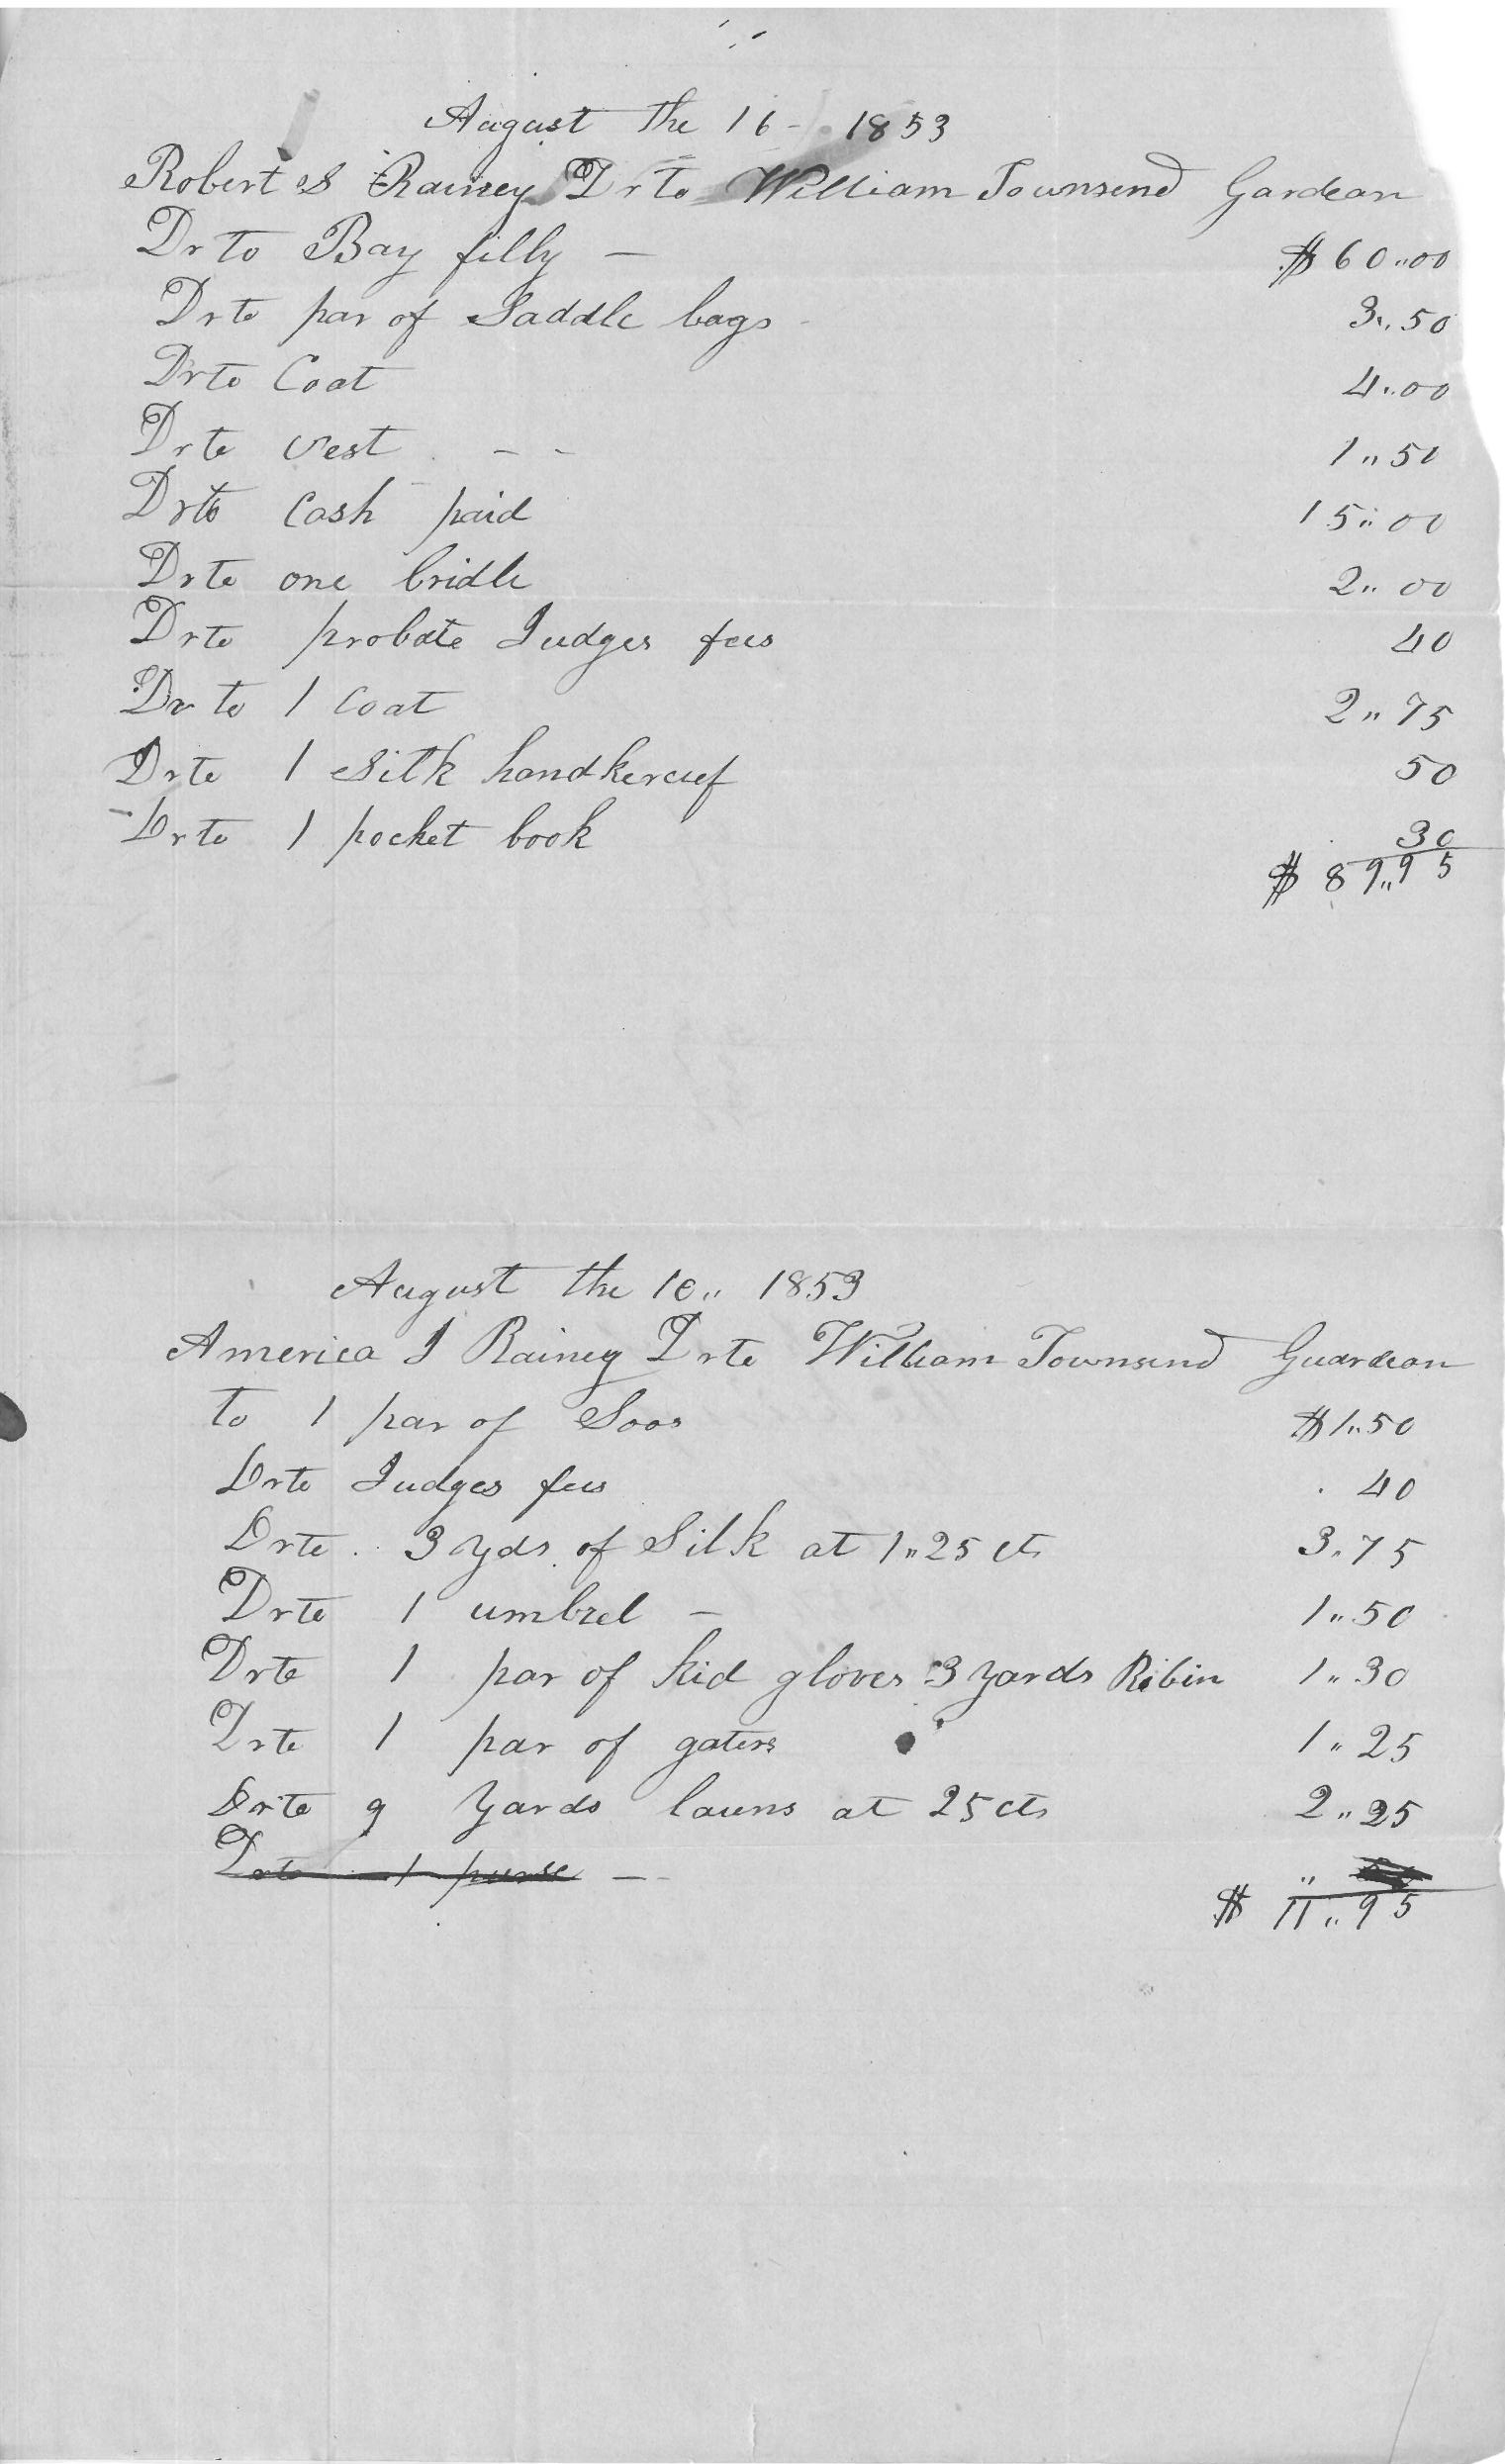 August the 16 - 1853
Robert S Rainey Dr to William Townsend Gardean
Dr to Bay filly — $ 60..00
Dr to par of Saddle bags 3..50
Dr to Coat 4..00
Dr to vest - - 1..50
Dr to Cash paid 15..00
Dr to one bridle 2..00
Dr to probate Judges fees 40
Dr to 1 Coat 2..75
Dr to 1 Silk handkercief 50
Dr to 1 pocket book 30
$ 89..95
August the 10.. 1853
America J Rainey Dr to William Townsend Guardean
to 1 par of Soos $1..50
Dr to Judges fees 40
Dr to 3 yds of Silk at 1..25 cts 3.75
Dr to 1 umbrel — 1..50
Dr to 1 par of kid gloves 3 yards Ribin 1..30
Dr to 1 par of gaters 1..25
Dr to 9 yards launs at 25 cts 2..25
Dr to 1 purse — ..
$ 11..95